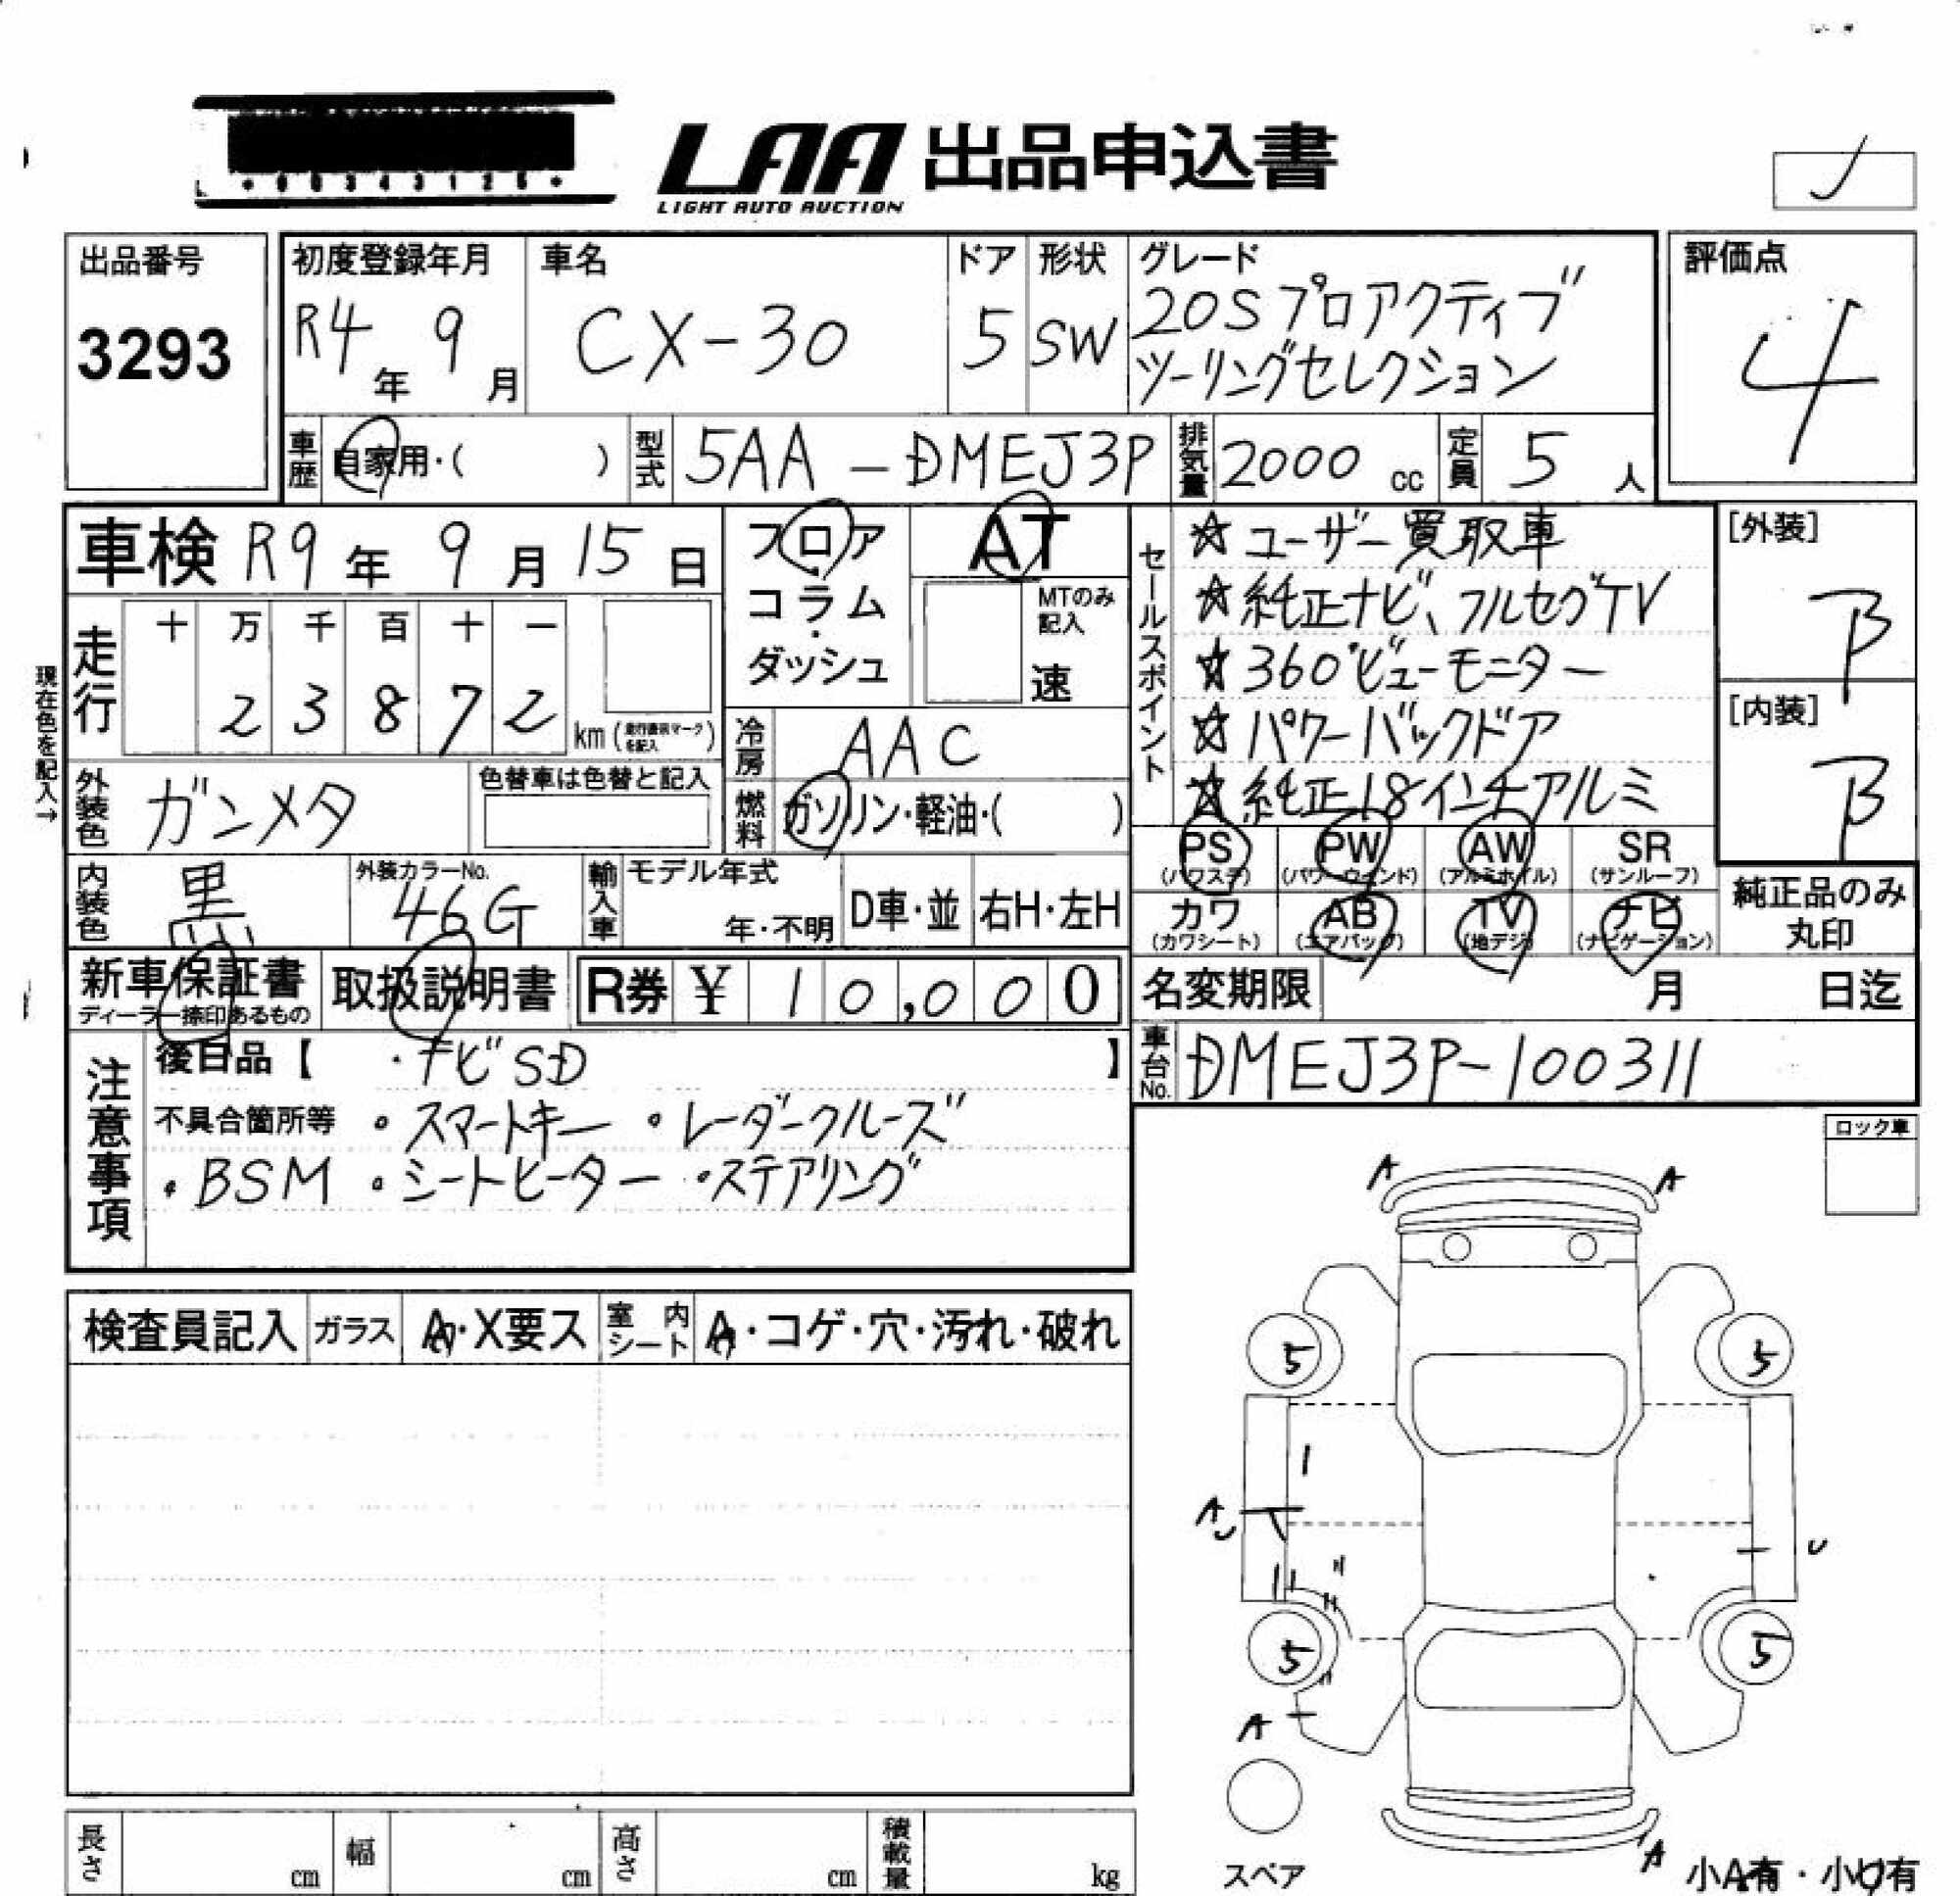 *00343126*
LAA 出品申込書
LIGHT AUTO AUCTION
出品番号
3293
初度登録年月
R4年 9月
車名
CX-30
ドア
5
形状
SW
グレード
20S プロアクティブ
ツーリングセレクション
評価点
4
車歴 自家用・( )
型式 5AA-DMEJ3P
排気量 2000 cc
定員 5 人
車検 R9年 9月 15日
フロア・コラム・ダッシュ
AT
MTのみ記入
速
セールスポイント
☆ユーザー買取車
☆純正ナビ、フルセグTV
☆360°ビューモニター
☆パワーバックドア
☆純正18インチアルミ
[外装]
B
[内装]
B
現在色を記入→
走行
十 万 千 百 十 一
2 3 8 7 2
km (走行距離マークを記入)
冷房 AAC
燃料 ガソリン・軽油・( )
外装色 ガンメタ
色替車は色替と記入
内装色 黒
外装カラーNo.
46G
輸入車 モデル年式
年・不明
D車・並
右H・左H
PS (パワステ)
PW (パワーウインド)
AW (アルミホイル)
SR (サンルーフ)
カワ (カワシート)
AB (エアバッグ)
TV (地デジ)
ナビ (ナビゲーション)
純正品のみ
丸印
新車保証書
ディーラー捺印あるもの
取扱説明書
R券 ¥ 10,000
名変期限 月 日迄
車台No. DMEJ3P-100311
注意事項
後日品【 ・ナビSD 】
不具合箇所等 ・スマートキー ・レーダークルーズ
・BSM ・シートヒーター ・ステアリング
ロック車
A A
5 5
A
U
U
5 5
A
A
検査員記入
ガラス A・X要ス
室内シート A・コゲ・穴・汚れ・破れ
長さ cm
幅 cm
高さ cm
積載量 kg
スペア
小A有・小U有